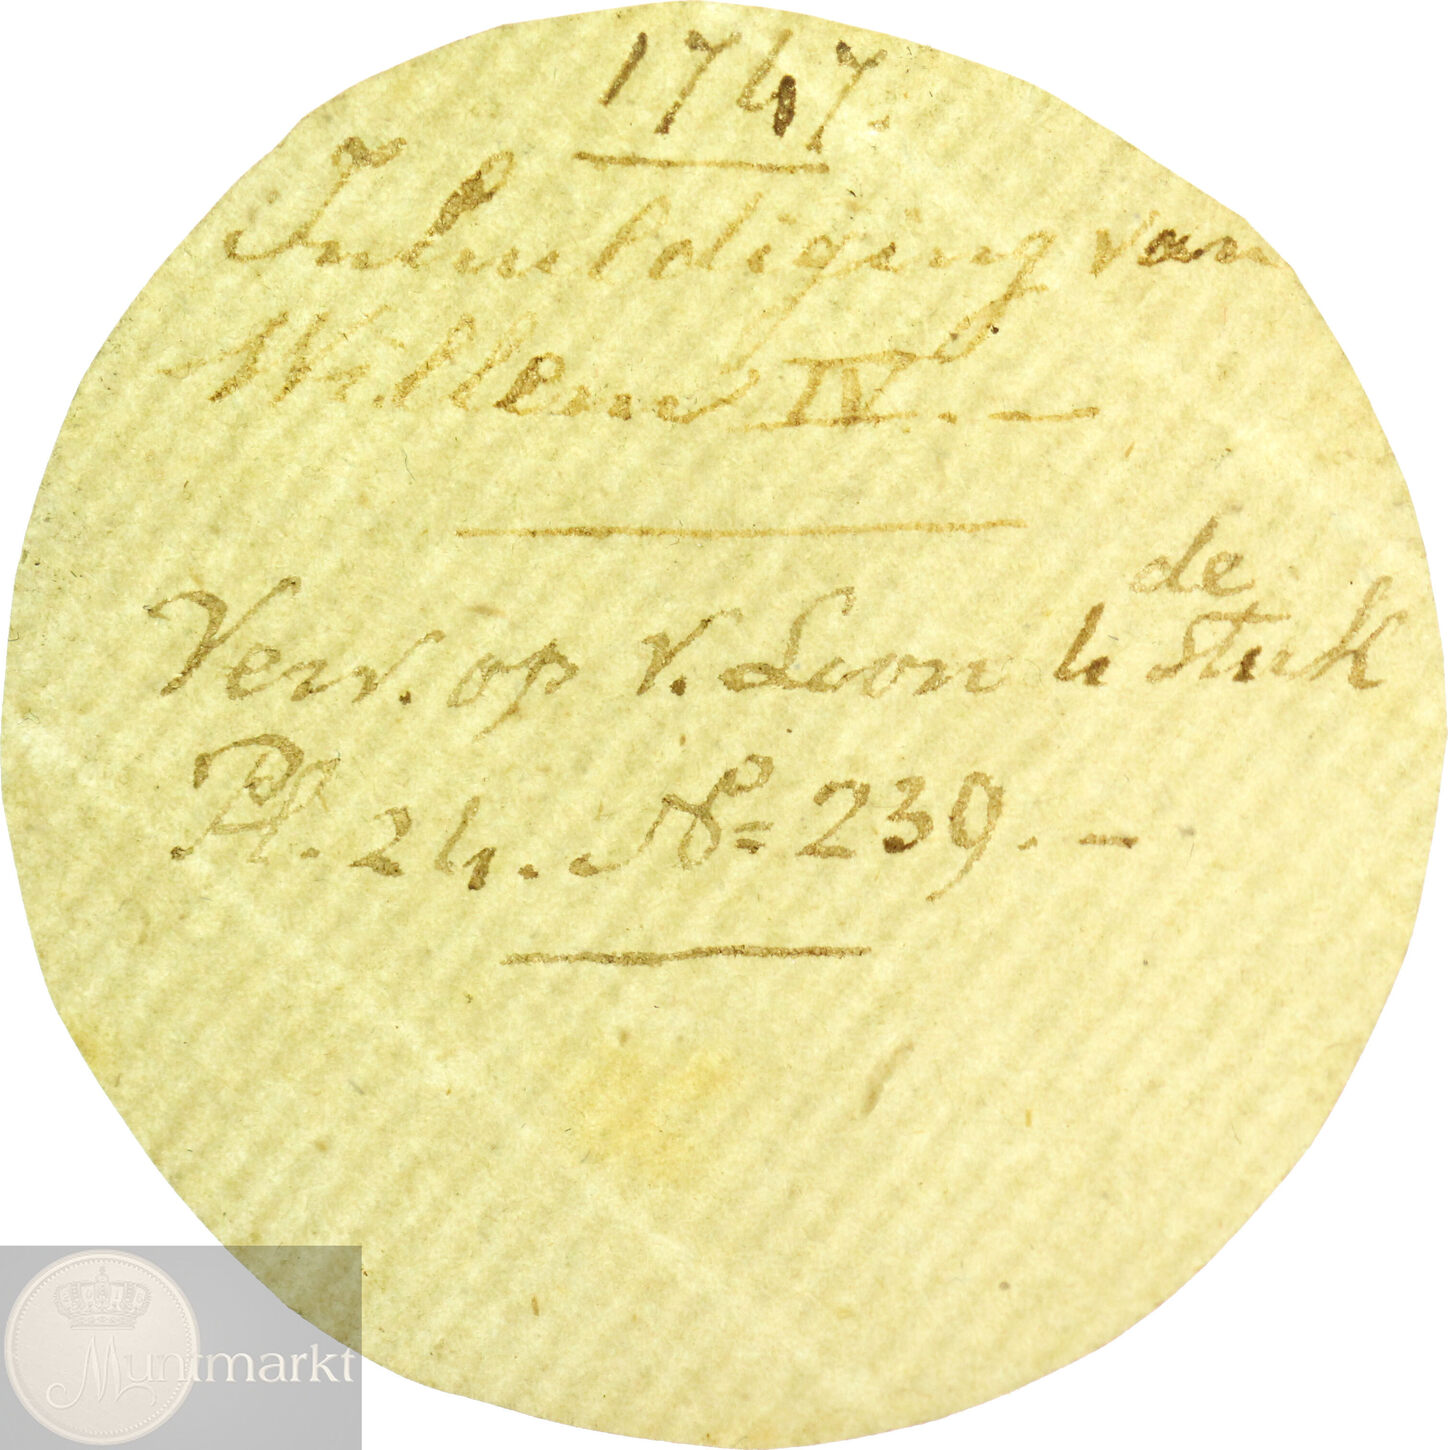 1747.
Inhuldiging van
Willem IV. —
Verv. op v. Loon 4de Stuk
Pl. 24. No= 239. —
Muntmarkt